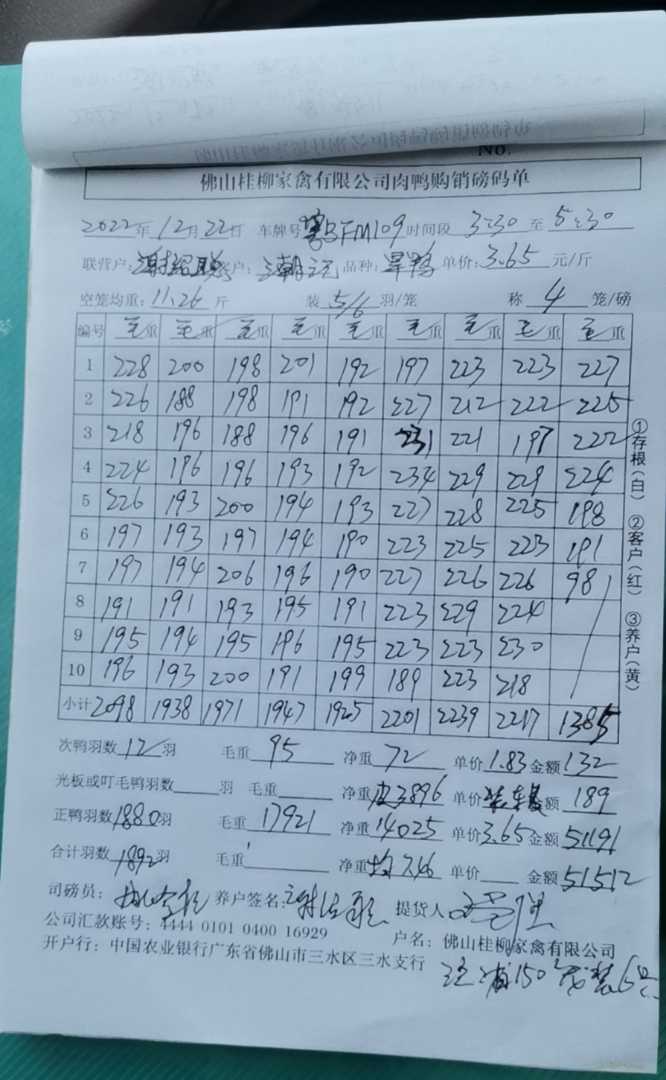 No.
佛山桂柳家禽有限公司肉鸭购销磅码单
2022年12月22日 车牌号 粤BFM109 时间段 3:30 至 5:30
联营户: 客户: 品种: 单价: 3.65 元/斤
空笼均重: 11.26 斤 装 5/6 羽/笼 称 4 笼/磅
编号 毛重 毛重 毛重 毛重 毛重 毛重 毛重 毛重 毛重
1 228 200 198 201 192 197 223 223 227
2 226 188 198 191 192 227 212 222 225
3 218 196 188 196 191 231 221 197 222
4 224 196 196 193 192 234 229 229 224
5 226 193 200 194 193 227 228 225 198
6 197 193 197 194 190 223 225 223 191
7 197 194 206 196 190 227 226 226 98
8 191 191 193 195 191 223 229 224
9 195 194 195 196 195 223 223 230
10 196 193 200 191 199 189 223 218
小计 2098 1938 1971 1947 1925 2201 2239 2217 1385
次鸭羽数 12 羽 毛重 95 净重 72 单价 1.83 金额 132
光板或叮毛鸭羽数 羽 毛重 净重 皮3896 单价 装车 额 189
正鸭羽数 1880 羽 毛重 17921 净重 14025 单价 3.65 金额 51191
合计羽数 1892 羽 毛重 净重 均7.46 单价 金额 51512
司磅员: 养户签名: 提货人
公司汇款账号: 4444 0101 0400 16929 户名: 佛山桂柳家禽有限公司
开户行: 中国农业银行广东省佛山市三水区三水支行
①存根(白) ②客户(红) ③养户(黄)